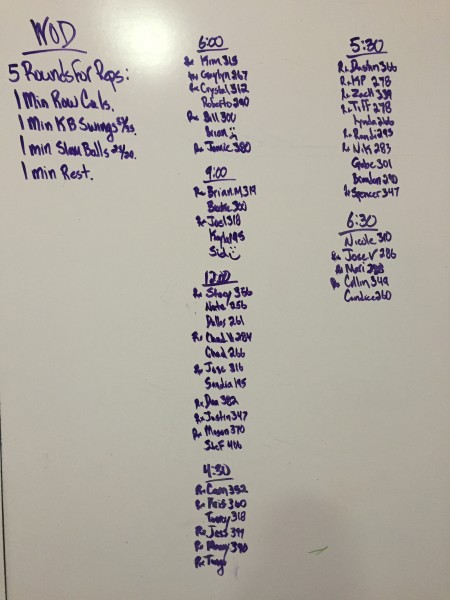 WOD
5 Rounds For Reps:
1 Min Row Cals.
1 Min KB Swings
1 min Slam Balls
1 min Rest.
6:00
Rx Kim 315
Gaylyn 267
Rx Crystal 312
Roberto 290
Rx Bill 300
Brian
Rx Jamie 380
9:00
Rx Brian.M 319
300
Rx Joel 318
Kayla 195
Sid
12:00
Rx Stacy 356
Nate 256
Dallas 261
Rx Chad H 284
Chad 266
Rx Jose 316
Sandra 195
Rx Dan 382
Rx Justin 347
Rx Mason 370
Stef 406
4:30
Rx Cam 352
Rx Kris 360
318
Rx Jess 399
Rx 390
Rx
5:30
Rx Dustin 366
Rx KP 278
Rx Zach 339
Rx Tiff 278
Lynda 266
Rx Randi 295
Rx Nik 283
Gabe 301
Brandon 290
Rx Spencer 347
6:30
Nicole 310
Rx Jose V 286
Rx Mari 288
Rx Collin 349
Candice 260